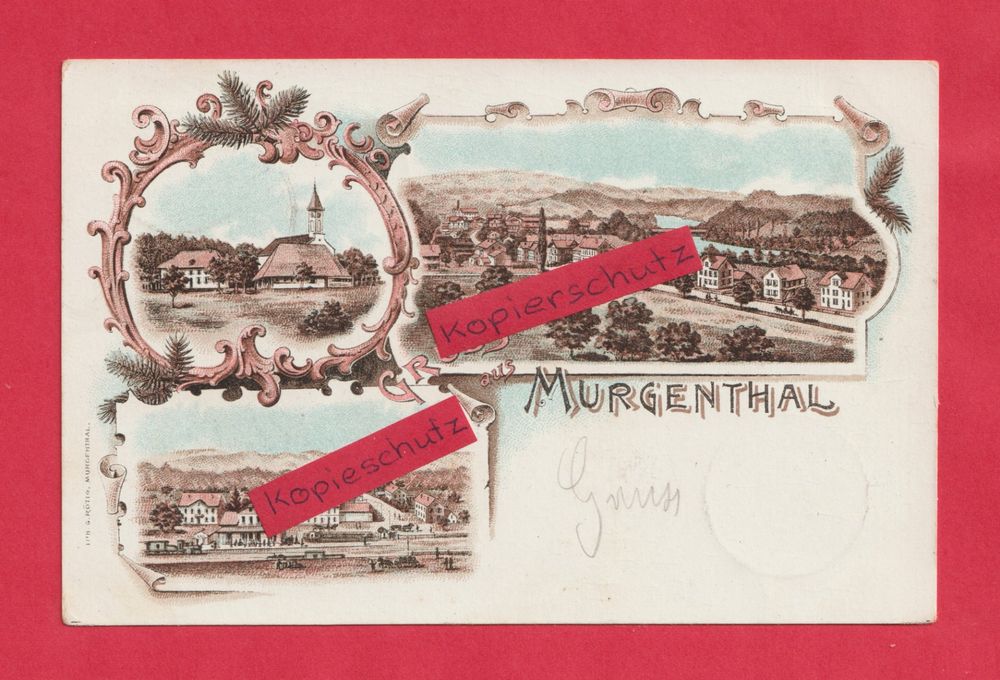 Kopierschutz
GRUSS aus
MURGENTHAL
Kopieschutz
Gruss
LITH. G. RÖTIG, MURGENTHAL.